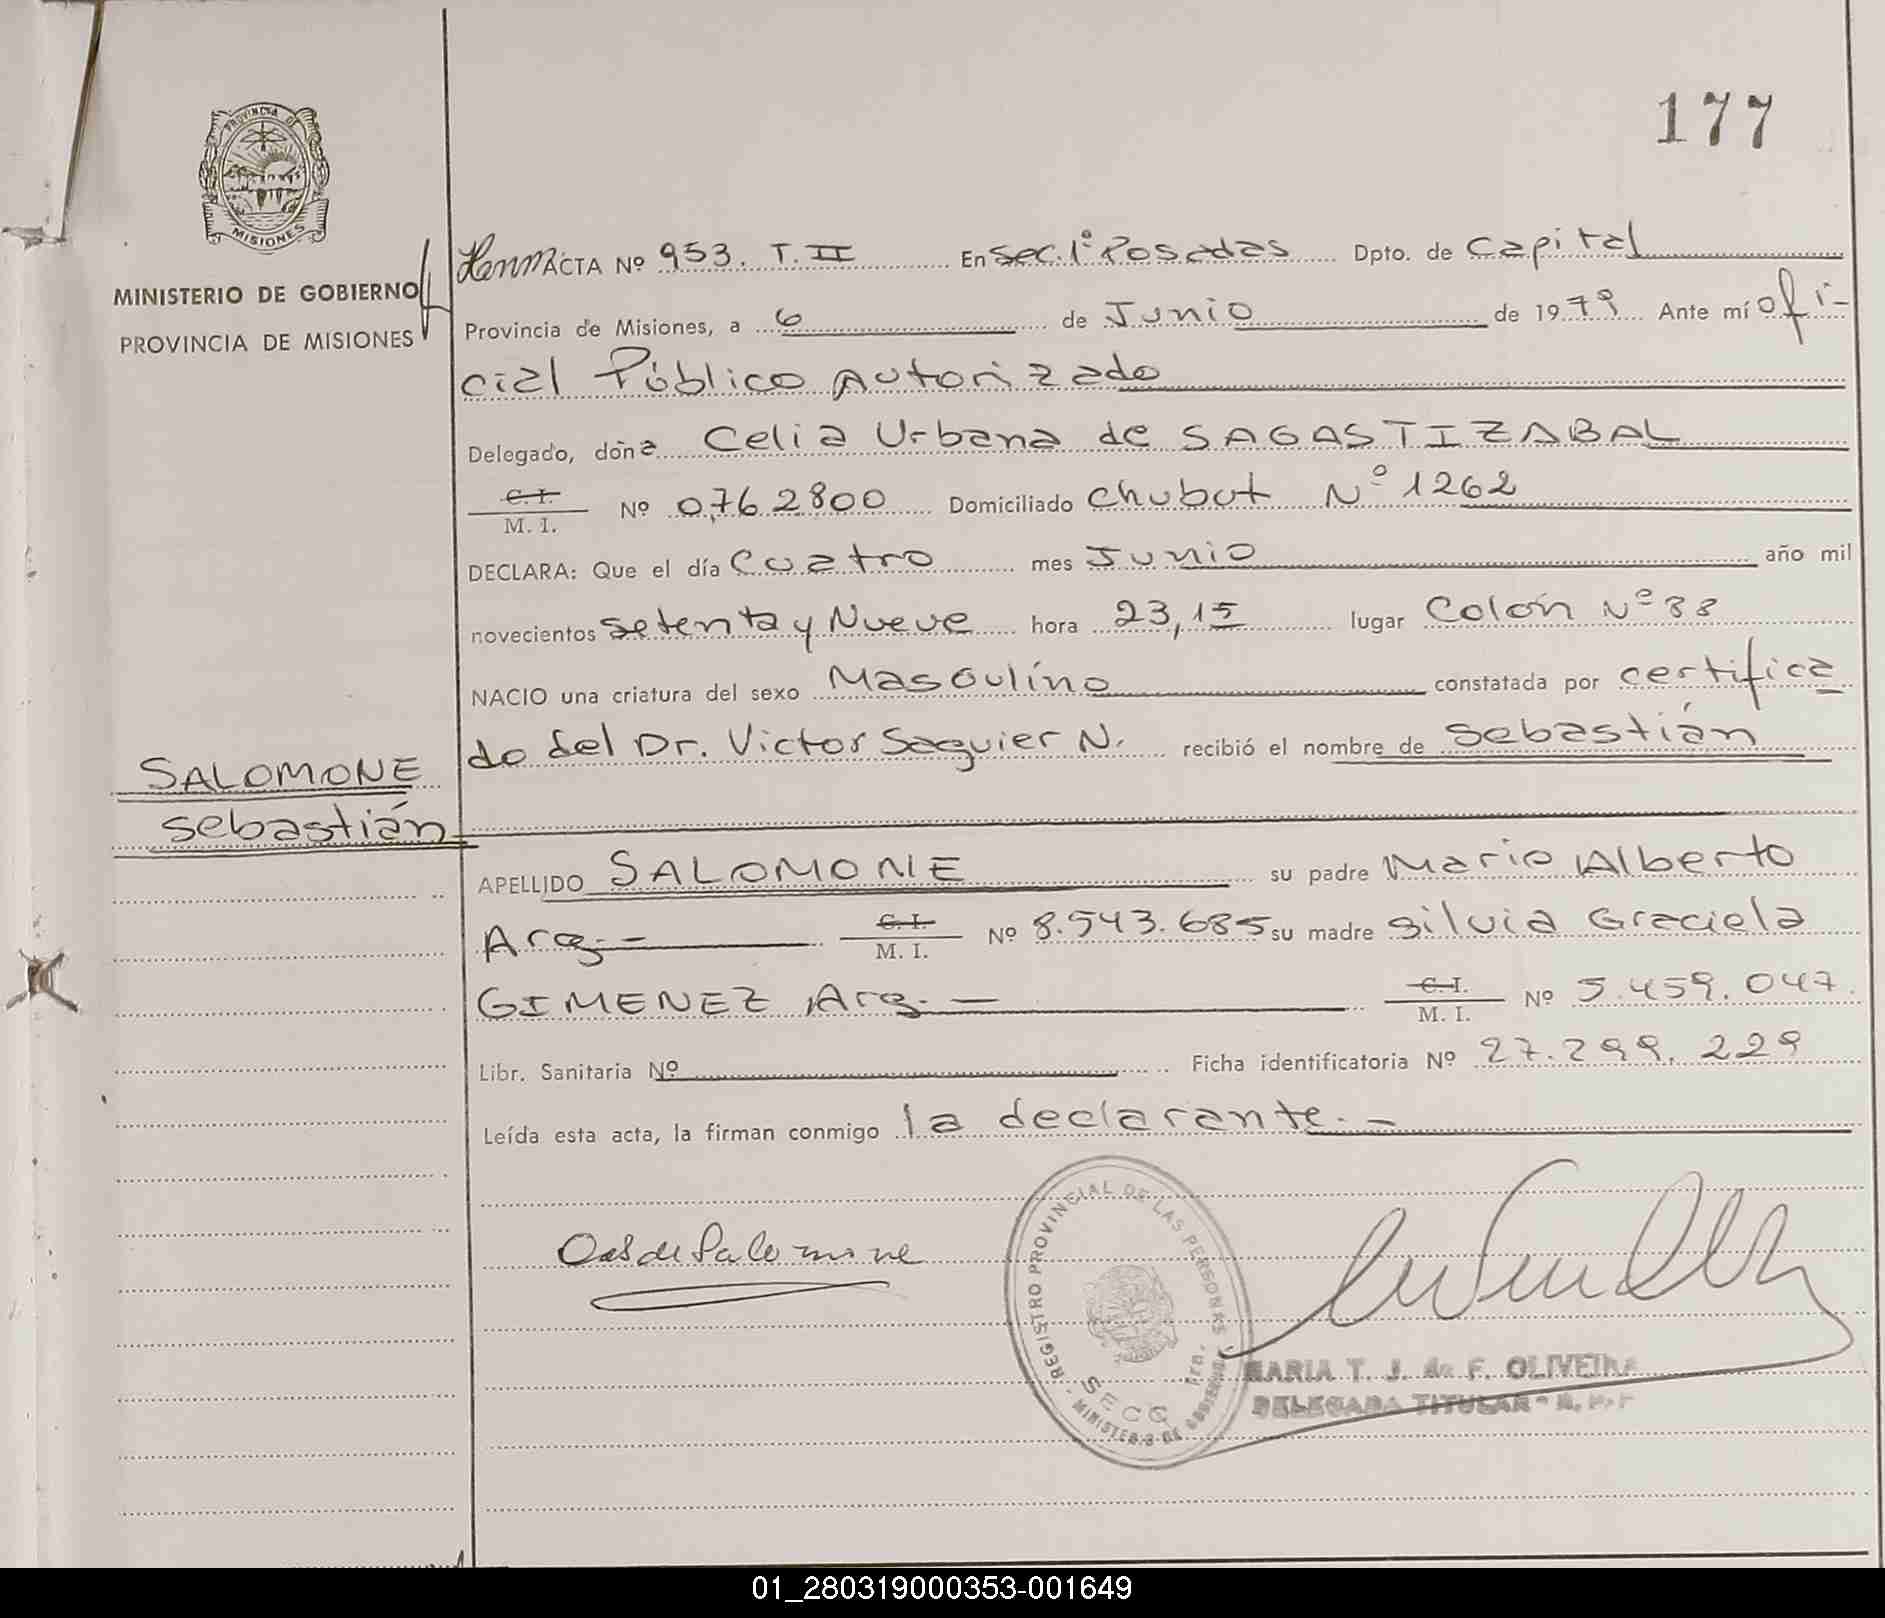 177
PROVINCIA DE
MISIONES
MINISTERIO DE GOBIERNO
PROVINCIA DE MISIONES
ACTA Nº 953. T. II En Sec. 1º Posadas Dpto. de Capital
Provincia de Misiones, a 6 de Junio de 1979 Ante mí ofi-
cial Público Autorizado
Delegado, doña Celia Urbana de SAGASTIZABAL
C. I.
M. I. Nº 0,762800 Domiciliado Chubut Nº 1262
DECLARA: Que el día Cuatro mes Junio año mil
novecientos setenta y Nueve hora 23,15 lugar Colón Nº 38
NACIO una criatura del sexo Masculino constatada por certifica
do del Dr. Victor Saguier N. recibió el nombre de Sebastián
SALOMONE
Sebastián
APELLIDO SALOMONE su padre Mario Alberto
Arg.- C. I. M. I. Nº 8.543.685 su madre Silvia Graciela
GIMENEZ Arg.- C. I. M. I. Nº 5.459.047.
Libr. Sanitaria Nº Ficha identificatoria Nº 27.299.229
Leída esta acta, la firman conmigo la declarante.-
de Salomone
REGISTRO PROVINCIAL DE LAS PERSONAS
SECC. 1ra.
MINISTERIO DE GOBIERNO
MARIA T. J. de F. OLIVEIRA
DELEGADA TITULAR - R. P. P.
01_280319000353-001649